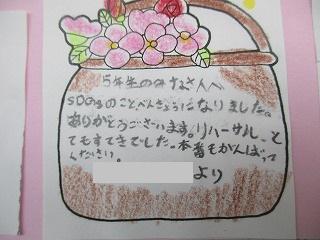 5年生のみなさんへ
SDGsのことべんきょうになりました。
ありがとうございます。リハーサル、と
てもすてきでした。本番もがんばって
ください。
より